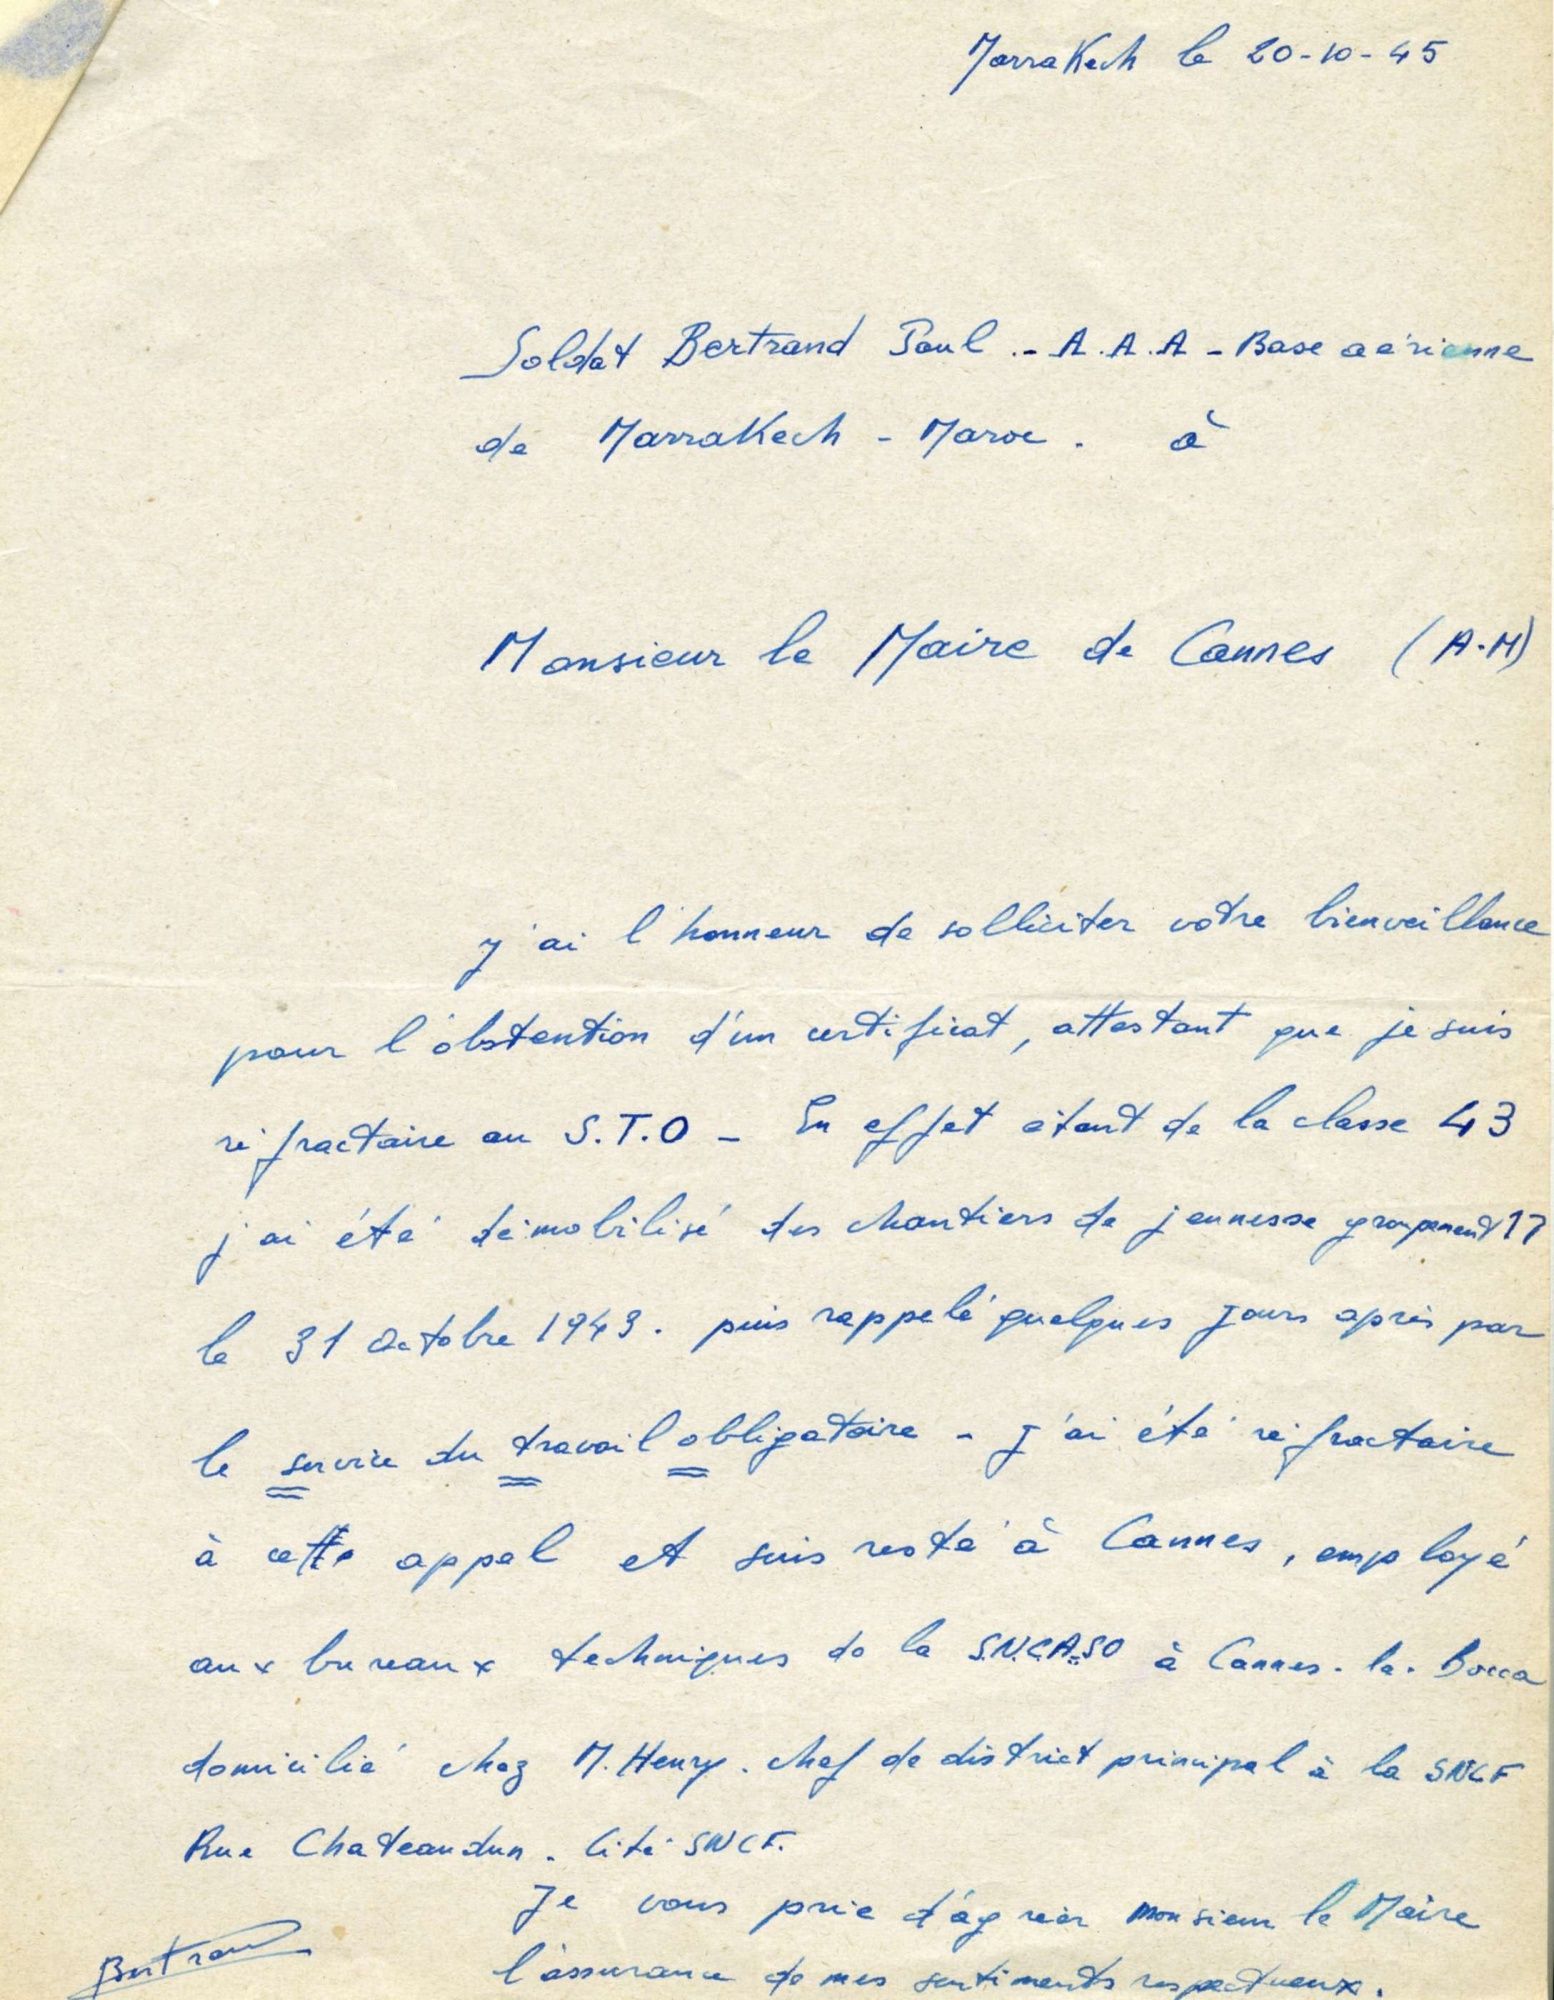 Marrakech le 20-10-45
Soldat Bertrand Paul .- A.A.A - Base aérienne
de Marrakech - Maroc . à
Monsieur le Maire de Cannes (A.M)
J'ai l'honneur de solliciter votre bienveillance
pour l'obstention d'un certificat, attestant que je suis
réfractaire au S.T.O - En effet étant de la classe 43
j'ai été démobilisé des chantiers de jeunesse groupement 17
le 31 Octobre 1943. puis rappelé quelques jours après par
le service du travail obligatoire - J'ai été réfractaire
à cette appel et suis resté à Cannes, employé
aux bureaux techniques de la S.N.C.A.SO à Cannes-la-Bocca
domicilié chez M. Henry. chef de district principal à la SNCF
Rue Chateaudun. Cité SNCF.
Je vous prie d'agréer monsieur le Maire
l'assurance de mes sentiments respectueux.
Bertrand